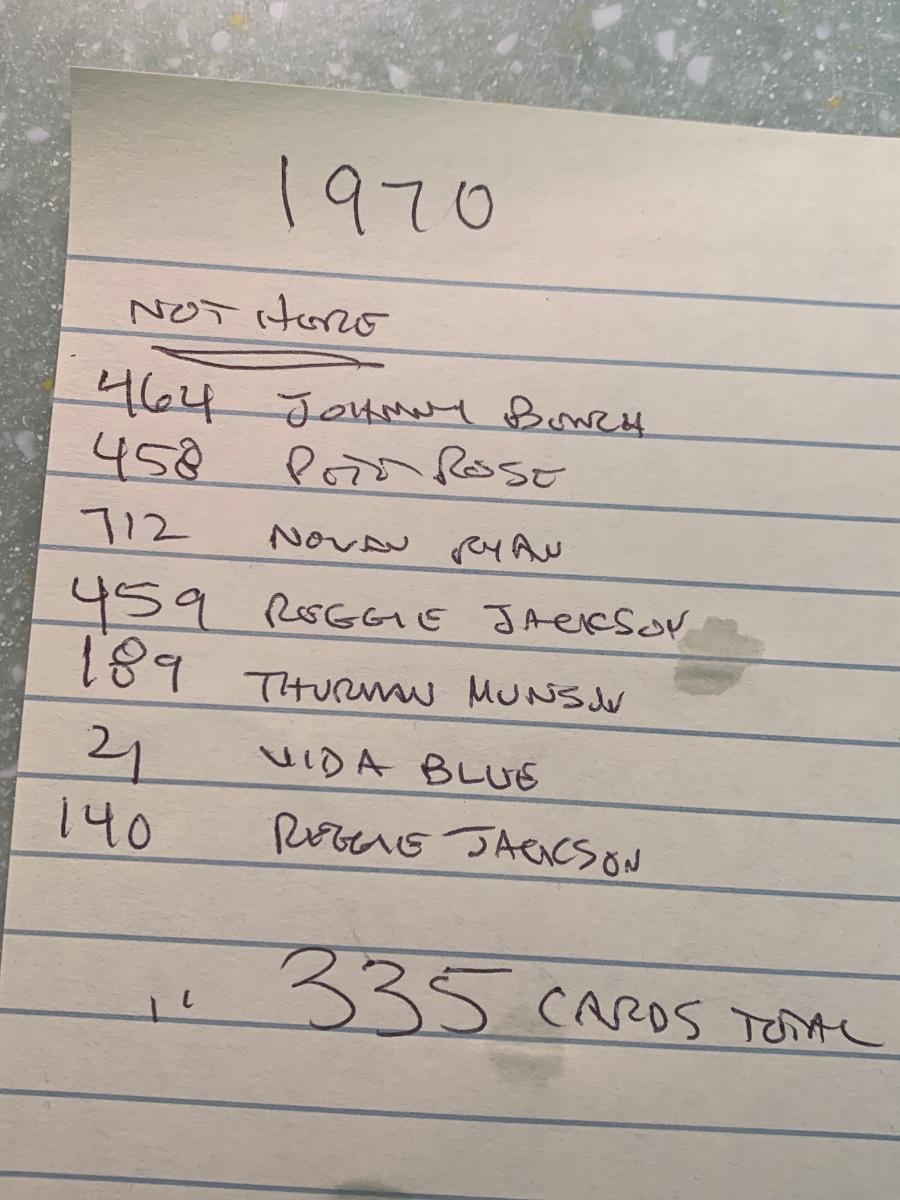 1970
NOT HERE
464 JOHNNY BENCH
458 PETE ROSE
712 NOLAN RYAN
459 REGGIE JACKSON
189 THURMAN MUNSON
21 VIDA BLUE
140 REGGIE JACKSON
335 CARDS TOTAL